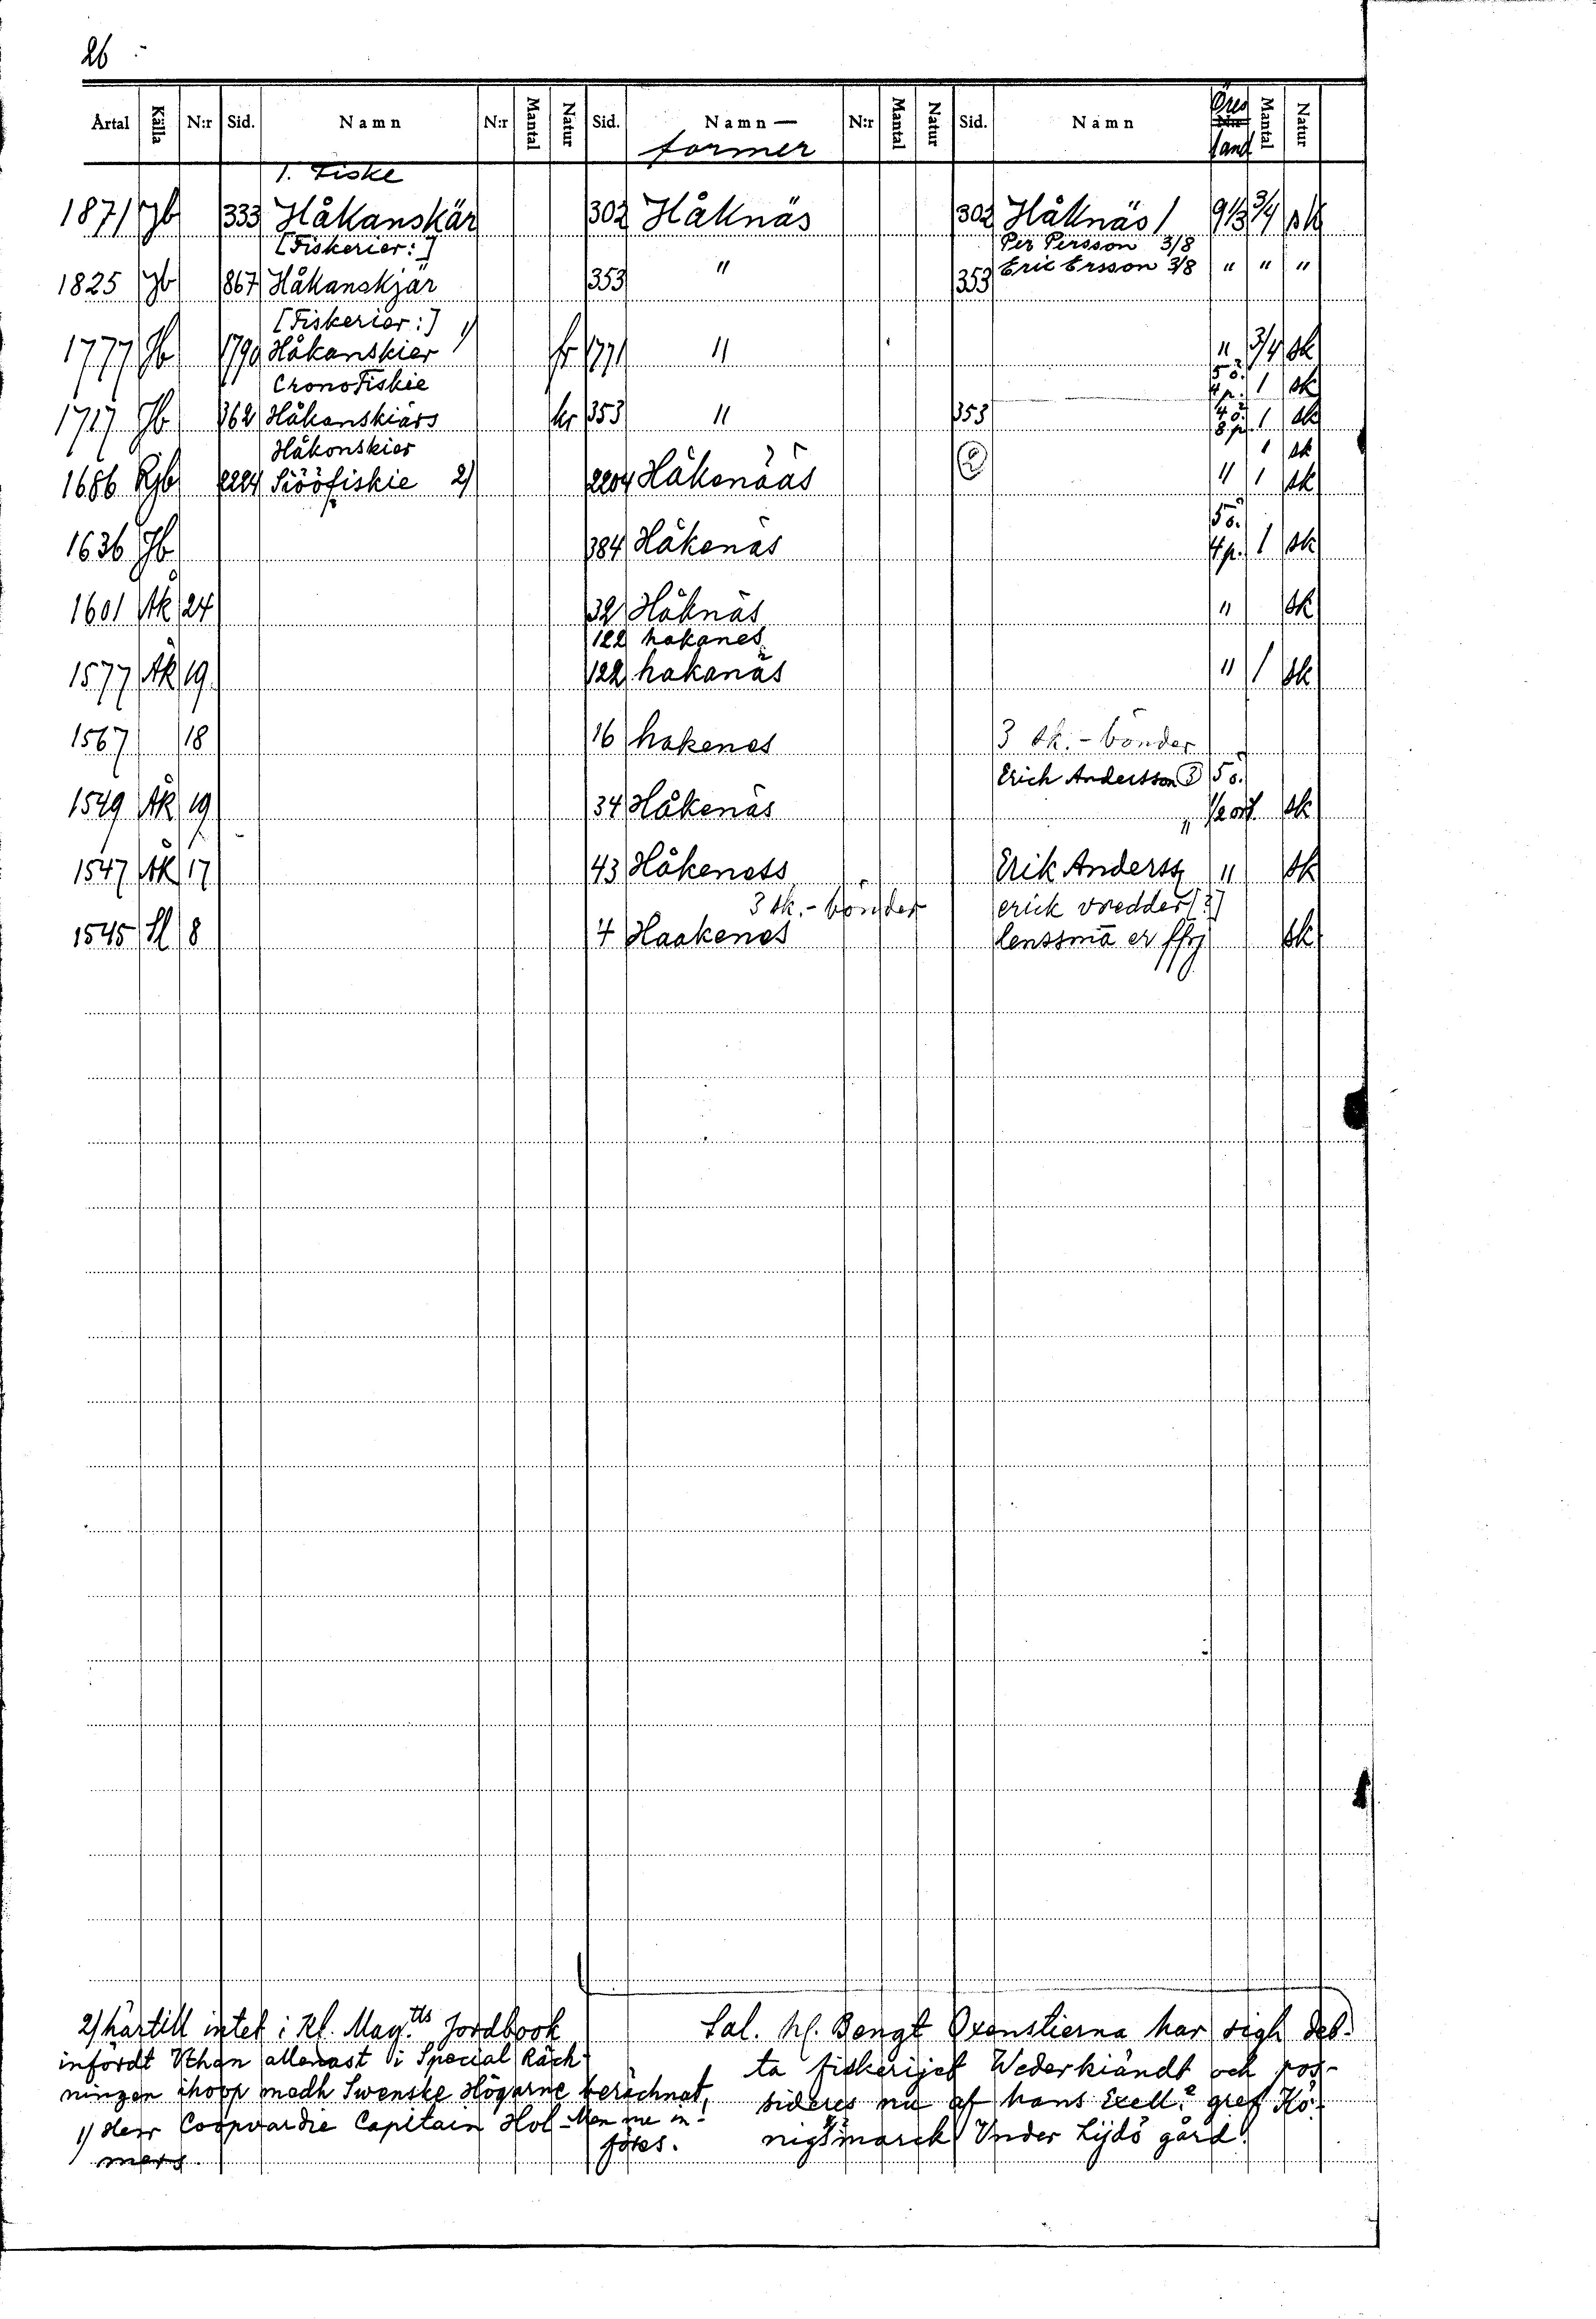 26
Årtal Källa N:r Sid. Namn N:r Mantal Natur Sid. Namn — N:r Mantal Natur Sid. Namn Öres Mantal Natur
former land
1. Fiske
1871 Jb 333 Håkanskär 302 Håknäs 302 Håknäs 1 9 1/3 3/4 sk
[Fiskerier:] Per Persson 3/8
1825 Jb 867 Håkanskjär 353 " 353 Eric Ersson 3/8 " " "
[Fiskerier:]
1777 Jb 1790 Håkanskier 1) fr 1771 " " 3/4 sk
CronoFiskie 5 ö. 4 p. 1 sk
1717 Jb 362 Håkanskiärs kr 353 " 353 4 ö. 8 p. 1 sk
Håkonskier 1 sk
1686 Rjb 2224 Siööfiskie 2) 2204 Håkenääs (2) " 1 sk
1636 Jb 384 Håkenäs 5 ö. 4 p. 1 sk
1601 Åk 24 32 Håknäs " sk
122 hakanes
1577 Åk 19 122 hakanäs " 1 sk
1567 18 16 hakenes 3 sk.-bönder
Erich Andersson (3) 5 ö.
1549 Åk 19 34 Håkenäs " 1/2 ort sk
1547 Åk 17 43 Håkeness Erik Anderss " sk
3 sk.-bönder erick vredder [?]
1545 Sl 8 4 Haakenes lenssmā er ffrj sk
2) härtill intet i Kl. May.tts Jordbook
infördt Uthan allenast i Special Räch-
ningen ihoop medh Swenske Högarne berächnat,
1) Herr Coopvardie Capitain Hol-
mers.
Men nu in-
föres.
Sal. Hr. Bengt Oxenstierna har sigh det-
ta fiskerijet Wederkiändt och pos-
sideres nu af hans Excell:e gref Kö-
nigsmarck Under Lijdö gård.